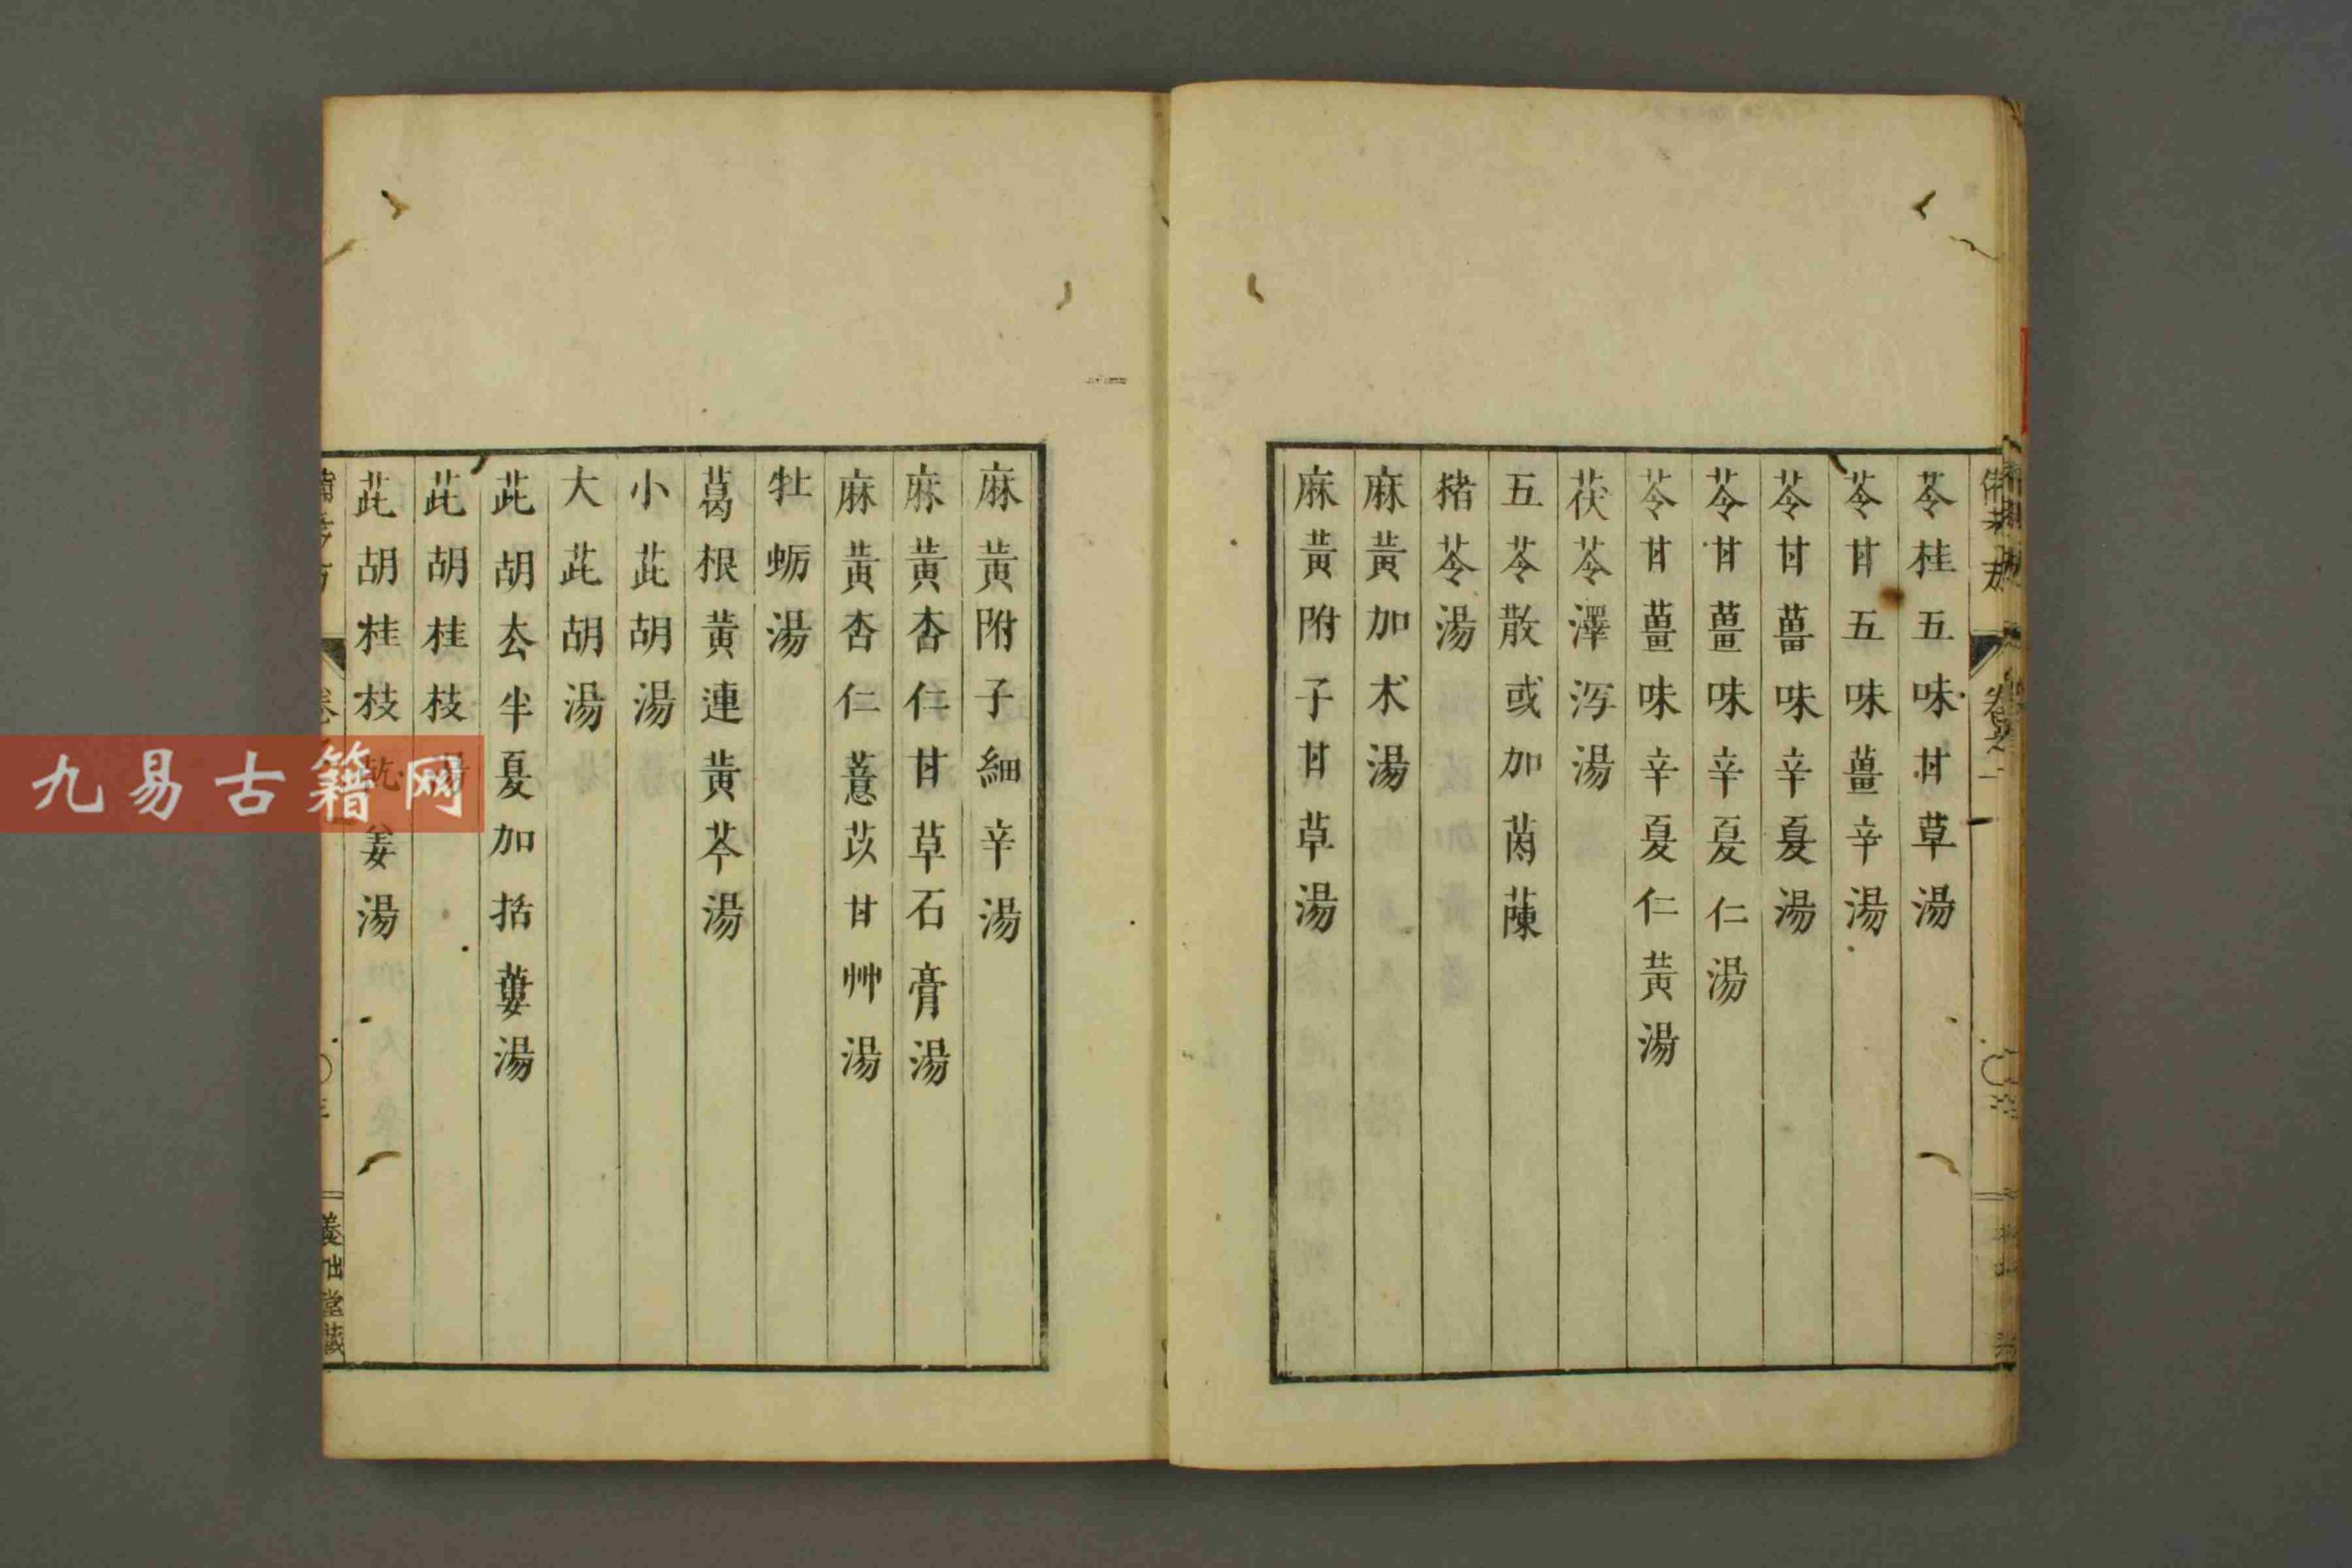 苓桂五味甘草湯
苓甘五味薑辛湯
苓甘薑味辛夏湯
苓甘薑味辛夏仁湯
苓甘薑味辛夏仁黃湯
茯苓澤泻湯
五苓散或加茵蔯
猪苓湯
麻黃加朮湯
麻黃附子甘草湯
麻黃附子細辛湯
麻黃杏仁甘草石膏湯
麻黃杏仁薏苡甘艸湯
牡蛎湯
葛根黃連黃芩湯
小茈胡湯
大茈胡湯
茈胡去半夏加括蔞湯
茈胡桂枝湯
茈胡桂枝乾姜湯
養拙堂藏
九易古籍网